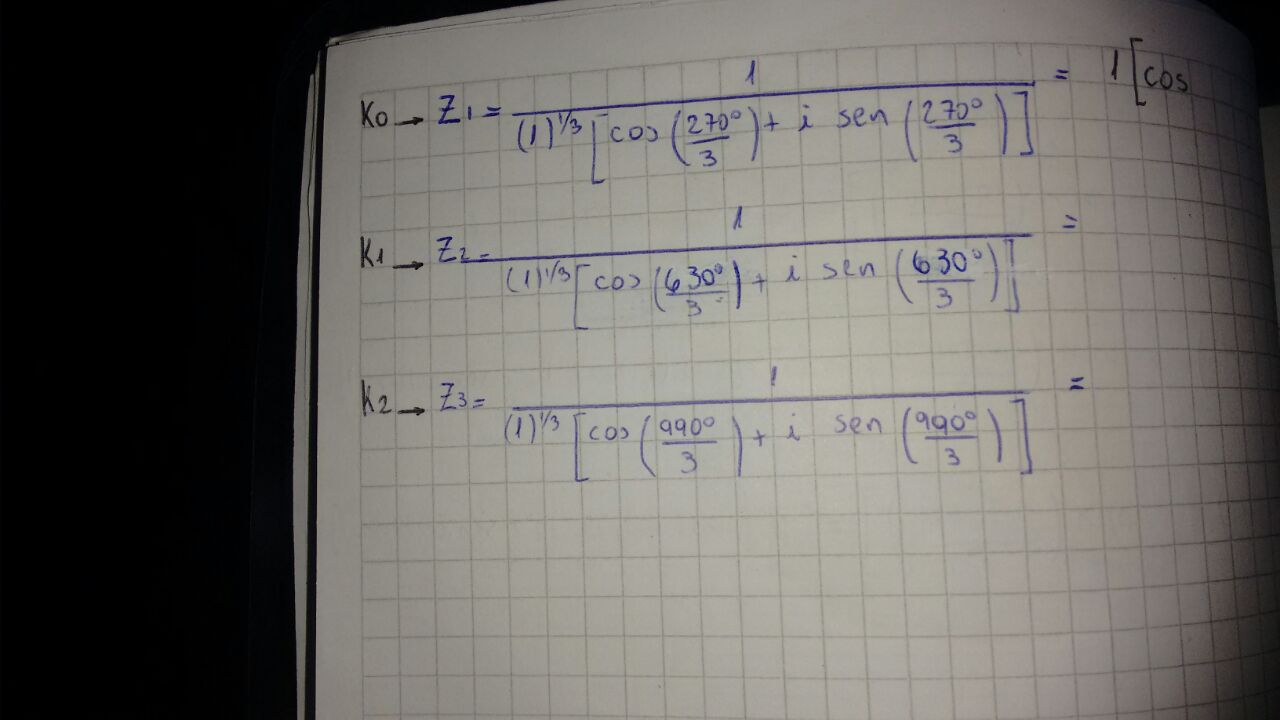 K0 → Z1 = 1 / (1)^1/3 [cos (270°/3) + i sen (270°/3)] = 1 [cos
K1 → Z2 = 1 / (1)^1/3 [cos (630°/3) + i sen (630°/3)] =
K2 → Z3 = 1 / (1)^1/3 [cos (990°/3) + i sen (990°/3)] =